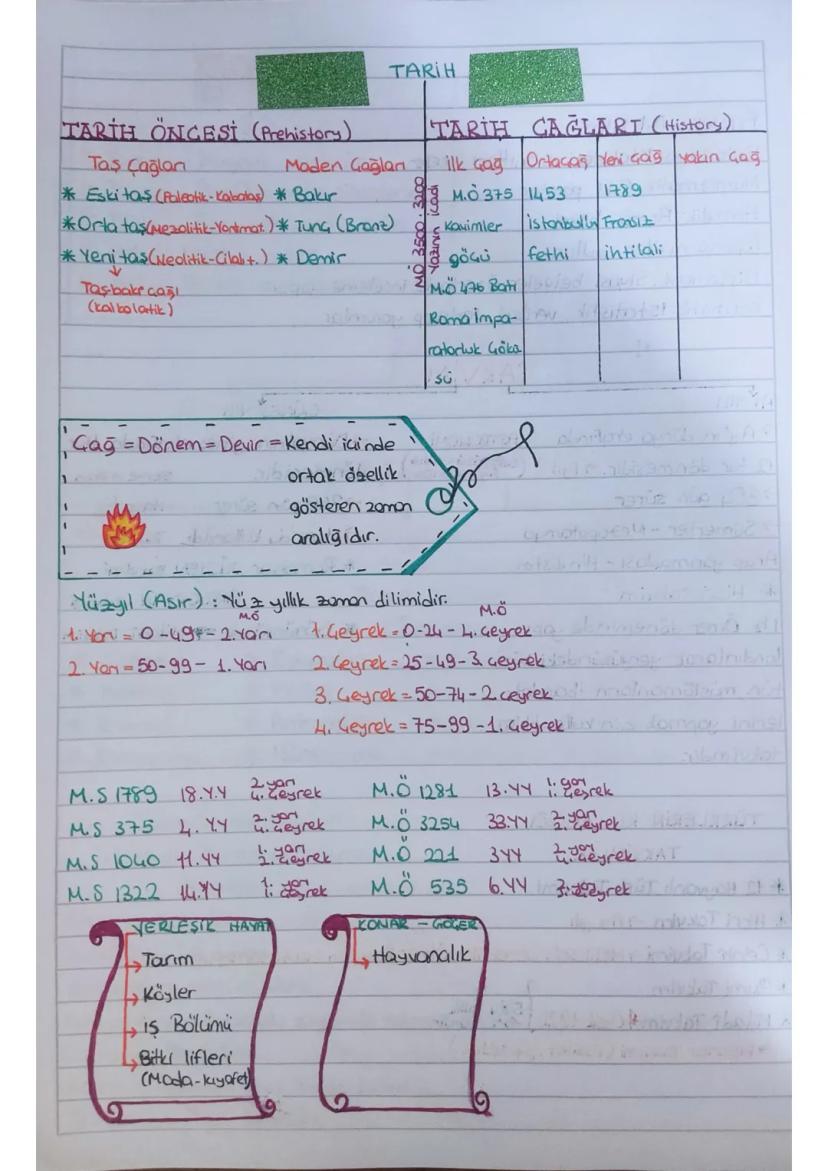 TARİH
TARİH ÖNCESİ (Prehistory)
TARİH ÇAĞLARI (History)
Taş Çağları
Maden Çağları
* Eski taş (Paleotik-Kabataş) * Bakır
* Orta taş (Mezolitik-Yontmat.) * Tunç (Bronz)
* Yeni taş (Neolitik-Cilalı t.) * Demir
Taşbakır çağı
(kalkolatik)
MÖ 3500-3200
Yazının icadı
İlk Çağ
M.Ö 375
Kavimler
göçü
M.Ö 476 Batı
Roma İmpa-
ratorluk Çökü
sü
Ortaçağ
1453
İstanbul'un
fethi
Yeni Çağ
1789
Fransız
ihtilali
Yakın Çağ
Çağ = Dönem = Devir = Kendi içinde
ortak özellik
gösteren zaman
aralığıdır.
Yüzyıl (Asır) : Yüz yıllık zaman dilimidir.
M.Ö
1. Yarı = 0-49 - 2. Yarı
2. Yarı = 50-99 - 1. Yarı
M.Ö
1. Çeyrek = 0-24 - 4. Çeyrek
2. Çeyrek = 25-49 - 3. Çeyrek
3. Çeyrek = 50-74 - 2. Çeyrek
4. Çeyrek = 75-99 - 1. Çeyrek
M.S 1789 18.Y.Y 2. yarı 4. Çeyrek
M.S 375 4. Y.Y 2. yarı 4. Çeyrek
M.S 1040 11.YY 1. yarı 2. Çeyrek
M.S 1322 14.YY 1. yarı 1. Çeyrek
M.Ö 1281 13.YY 1. yarı 1. Çeyrek
M.Ö 3254 33.YY 2. yarı 2. Çeyrek
M.Ö 221 3YY 2. yarı 4. Çeyrek
M.Ö 535 6.YY 3. Çeyrek
YERLEŞİK HAYAT
Tarım
Köyler
İş Bölümü
Bitki lifleri
(Moda-kıyafet)
KONAR - GÖÇER
Hayvanalık